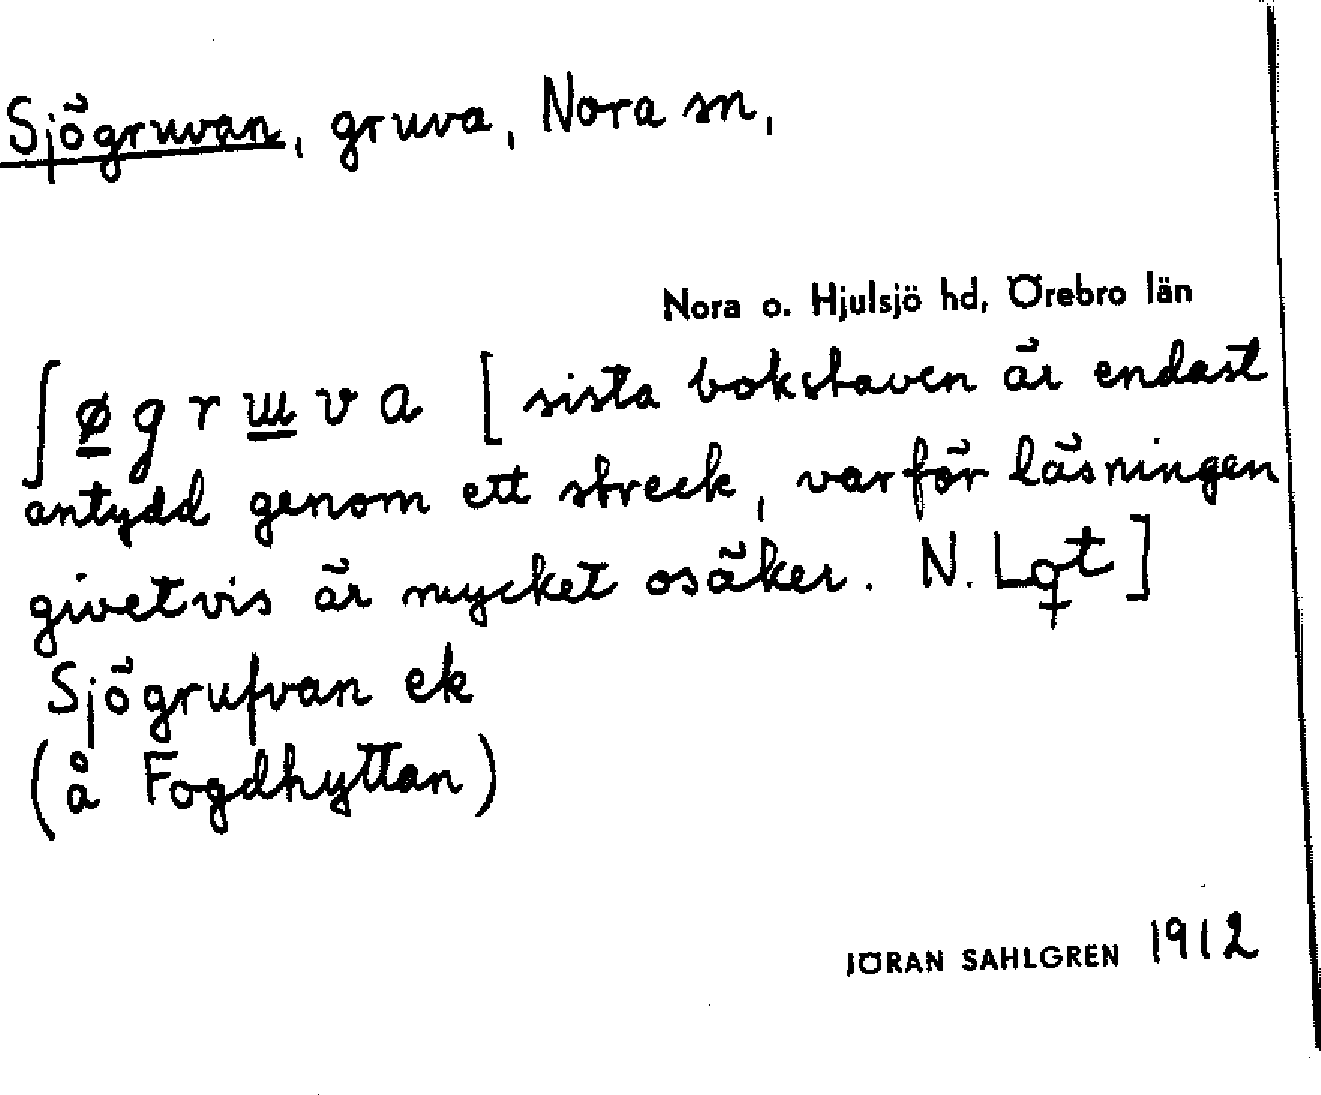 Sjögruvan, gruva, Nora sn,
Nora o. Hjulsjö hd, Örebro län
ʃø̲grɯ̲va [sista bokstaven är endast
antydd genom ett streck, varför läsningen
givetvis är mycket osäker. N. Lqt]
Sjögrufvan ek
(å Fogdhyttan)
JÖRAN SAHLGREN 1912